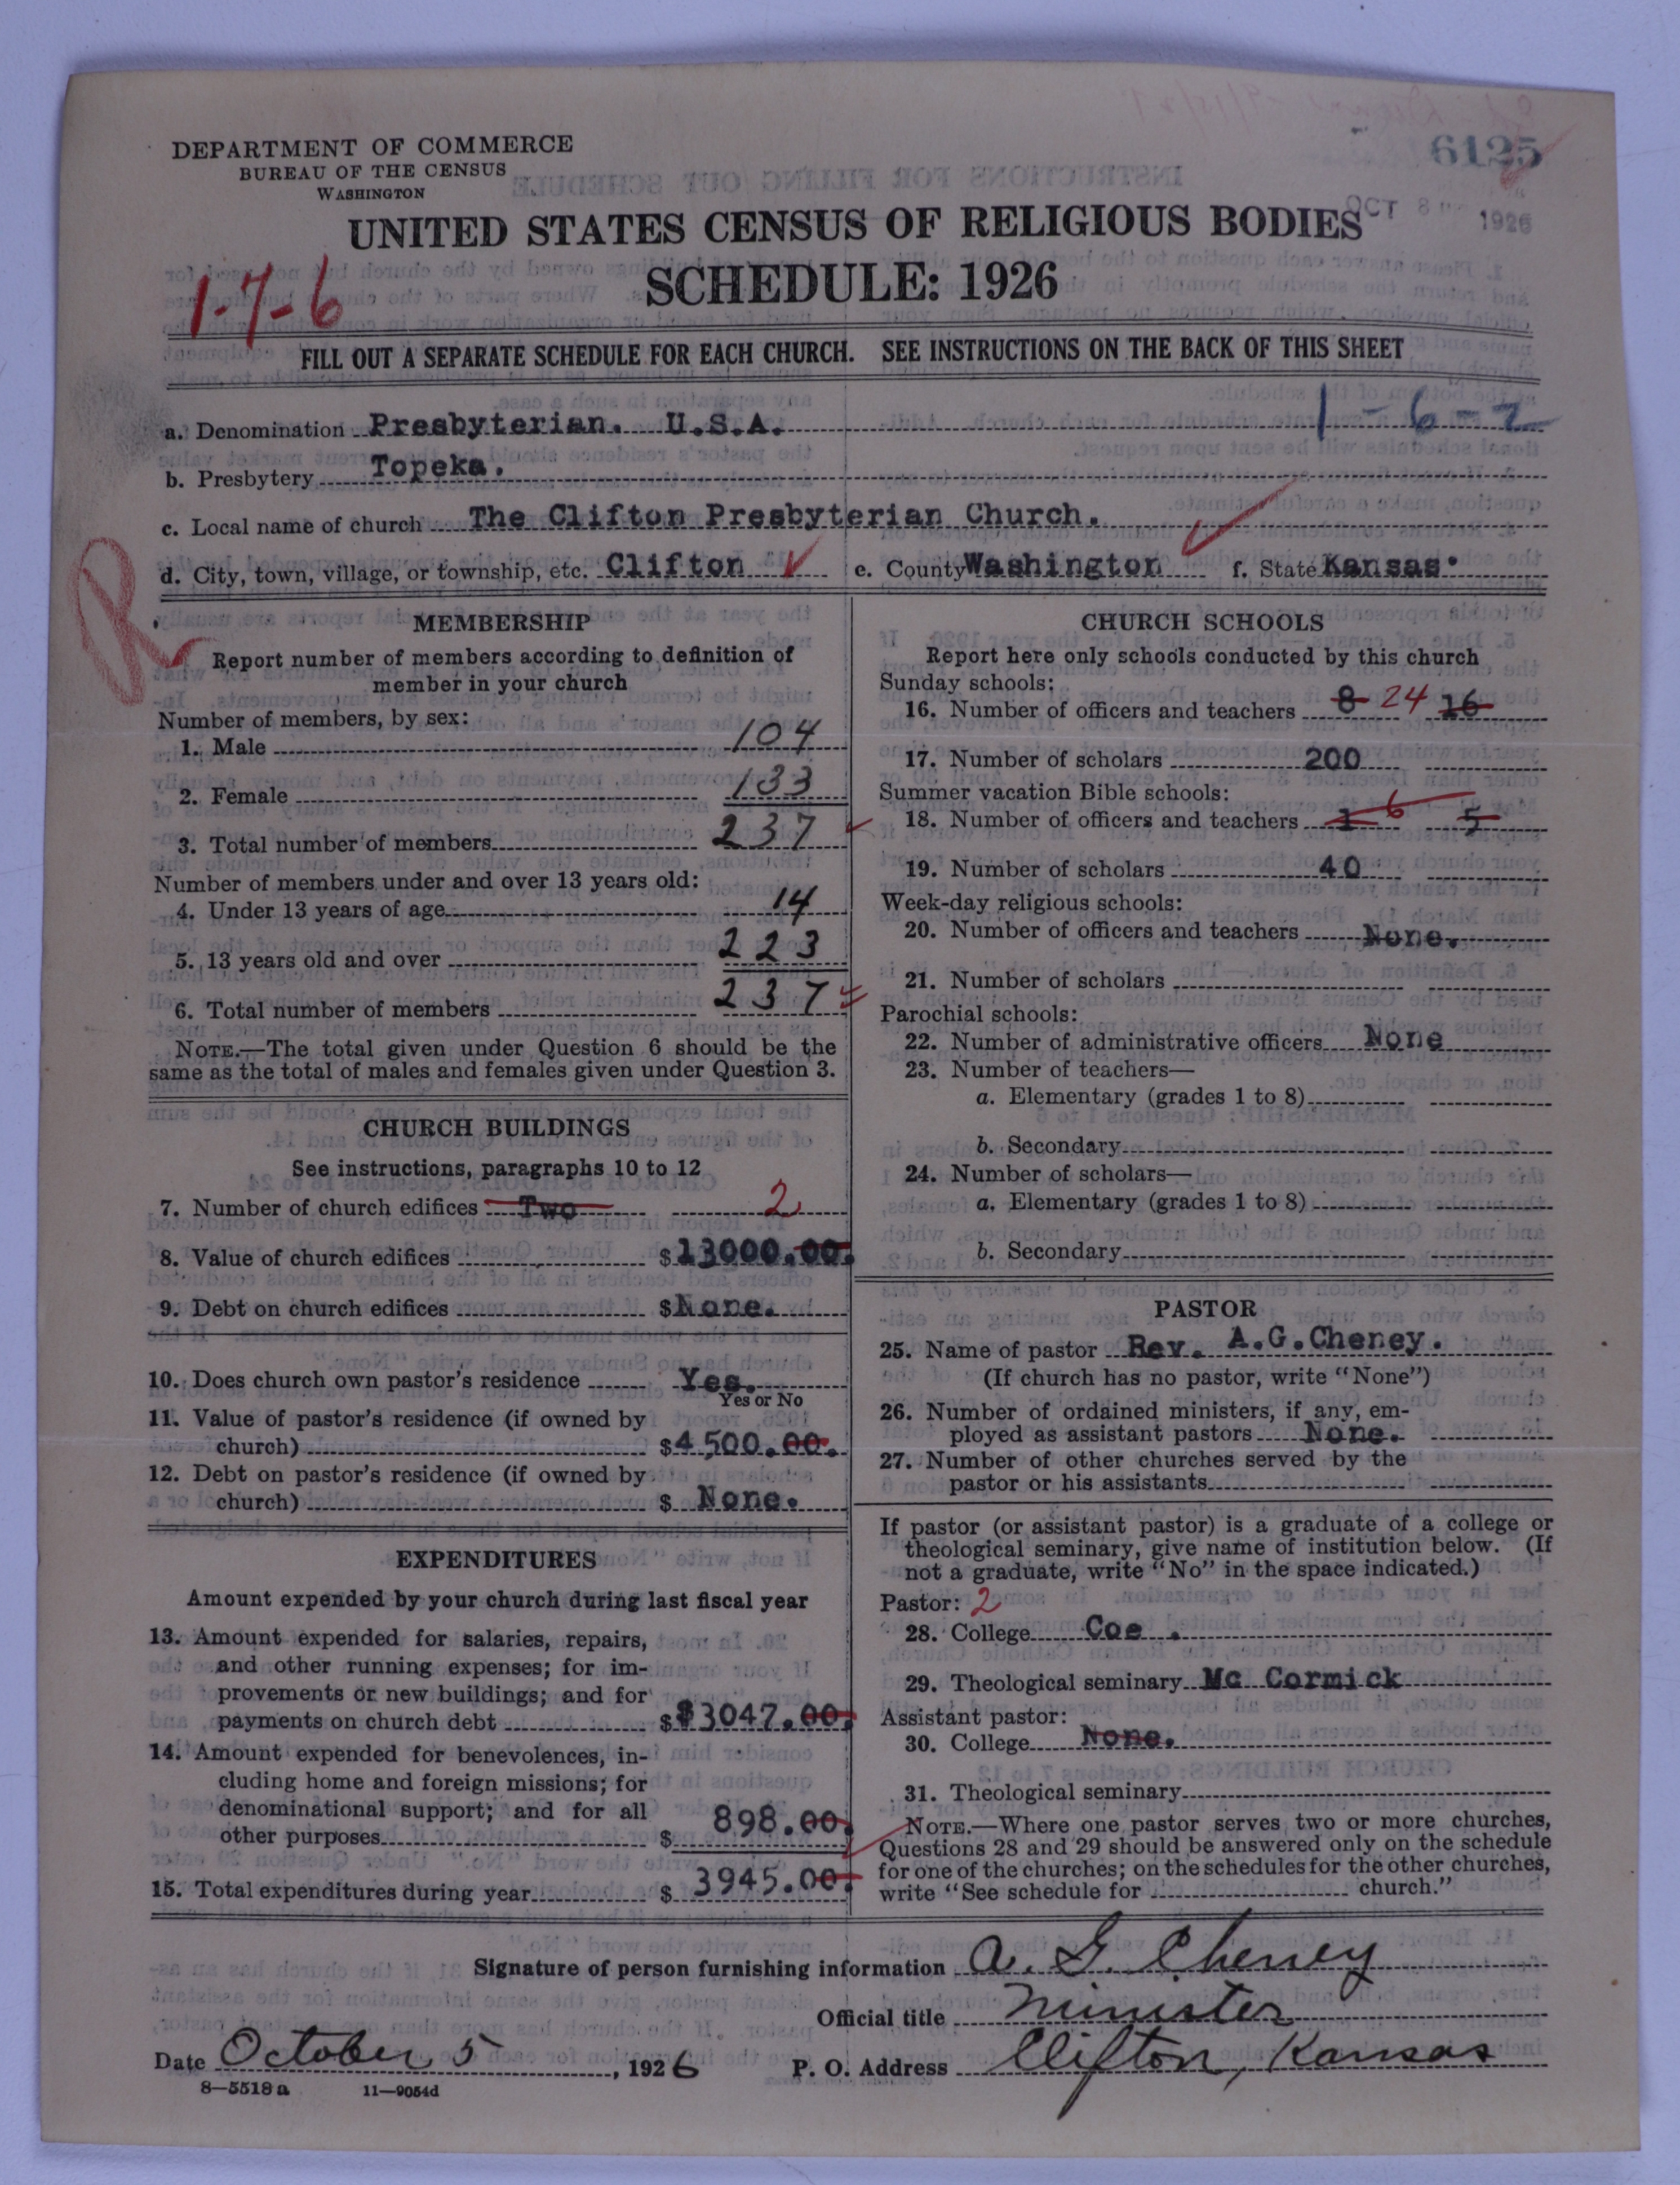 6125
DEPARTMENT OF COMMERCE
BUREAU OF THE CENSUS
WASHINGTON
OCT 8 1926
UNITED STATES CENSUS OF RELIGIOUS BODIES
SCHEDULE: 1926
1-7-6
FILL OUT A SEPARATE SCHEDULE FOR EACH CHURCH. SEE INSTRUCTIONS ON THE BACK OF THIS SHEET
1-6-2
a. Denomination Presbyterian. U.S.A.
b. Presbytery Topeka.
c. Local name of church The Clifton Presbyterian Church.
d. City, town, village, or township, etc. Clifton e. County Washington f. State Kansas.
R
MEMBERSHIP
Report number of members according to definition of
member in your church
Number of members, by sex:
1. Male 104
2. Female 133
3. Total number of members 237
Number of members under and over 13 years old:
4. Under 13 years of age 14
5. 13 years old and over 223
6. Total number of members 237
NOTE.—The total given under Question 6 should be the
same as the total of males and females given under Question 3.
CHURCH BUILDINGS
See instructions, paragraphs 10 to 12
7. Number of church edifices Two 2
8. Value of church edifices $13000.00.
9. Debt on church edifices $None.
10. Does church own pastor's residence Yes.
Yes or No
11. Value of pastor's residence (if owned by
church) $4500.00.
12. Debt on pastor's residence (if owned by
church) $ None.
EXPENDITURES
Amount expended by your church during last fiscal year
13. Amount expended for salaries, repairs,
and other running expenses; for im-
provements or new buildings; and for
payments on church debt $$3047.00.
14. Amount expended for benevolences, in-
cluding home and foreign missions; for
denominational support; and for all
other purposes $ 898.00.
15. Total expenditures during year $ 3945.00.
CHURCH SCHOOLS
Report here only schools conducted by this church
Sunday schools:
16. Number of officers and teachers 8 24 16
17. Number of scholars 200
Summer vacation Bible schools:
18. Number of officers and teachers 1 6 5
19. Number of scholars 40
Week-day religious schools:
20. Number of officers and teachers None.
21. Number of scholars
Parochial schools:
22. Number of administrative officers None
23. Number of teachers—
a. Elementary (grades 1 to 8)
b. Secondary
24. Number of scholars—
a. Elementary (grades 1 to 8)
b. Secondary
PASTOR
25. Name of pastor Rev. A.G.Cheney.
(If church has no pastor, write "None")
26. Number of ordained ministers, if any, em-
ployed as assistant pastors None.
27. Number of other churches served by the
pastor or his assistants
If pastor (or assistant pastor) is a graduate of a college or
theological seminary, give name of institution below. (If
not a graduate, write "No" in the space indicated.)
Pastor: 2
28. College Coe .
29. Theological seminary Mc Cormick
Assistant pastor:
30. College None.
31. Theological seminary
NOTE.—Where one pastor serves two or more churches,
Questions 28 and 29 should be answered only on the schedule
for one of the churches; on the schedules for the other churches,
write "See schedule for church."
Signature of person furnishing information A. G. Cheney
Official title Minister
Date October 5, 1926 P. O. Address Clifton, Kansas
8—5518a 11—9054d